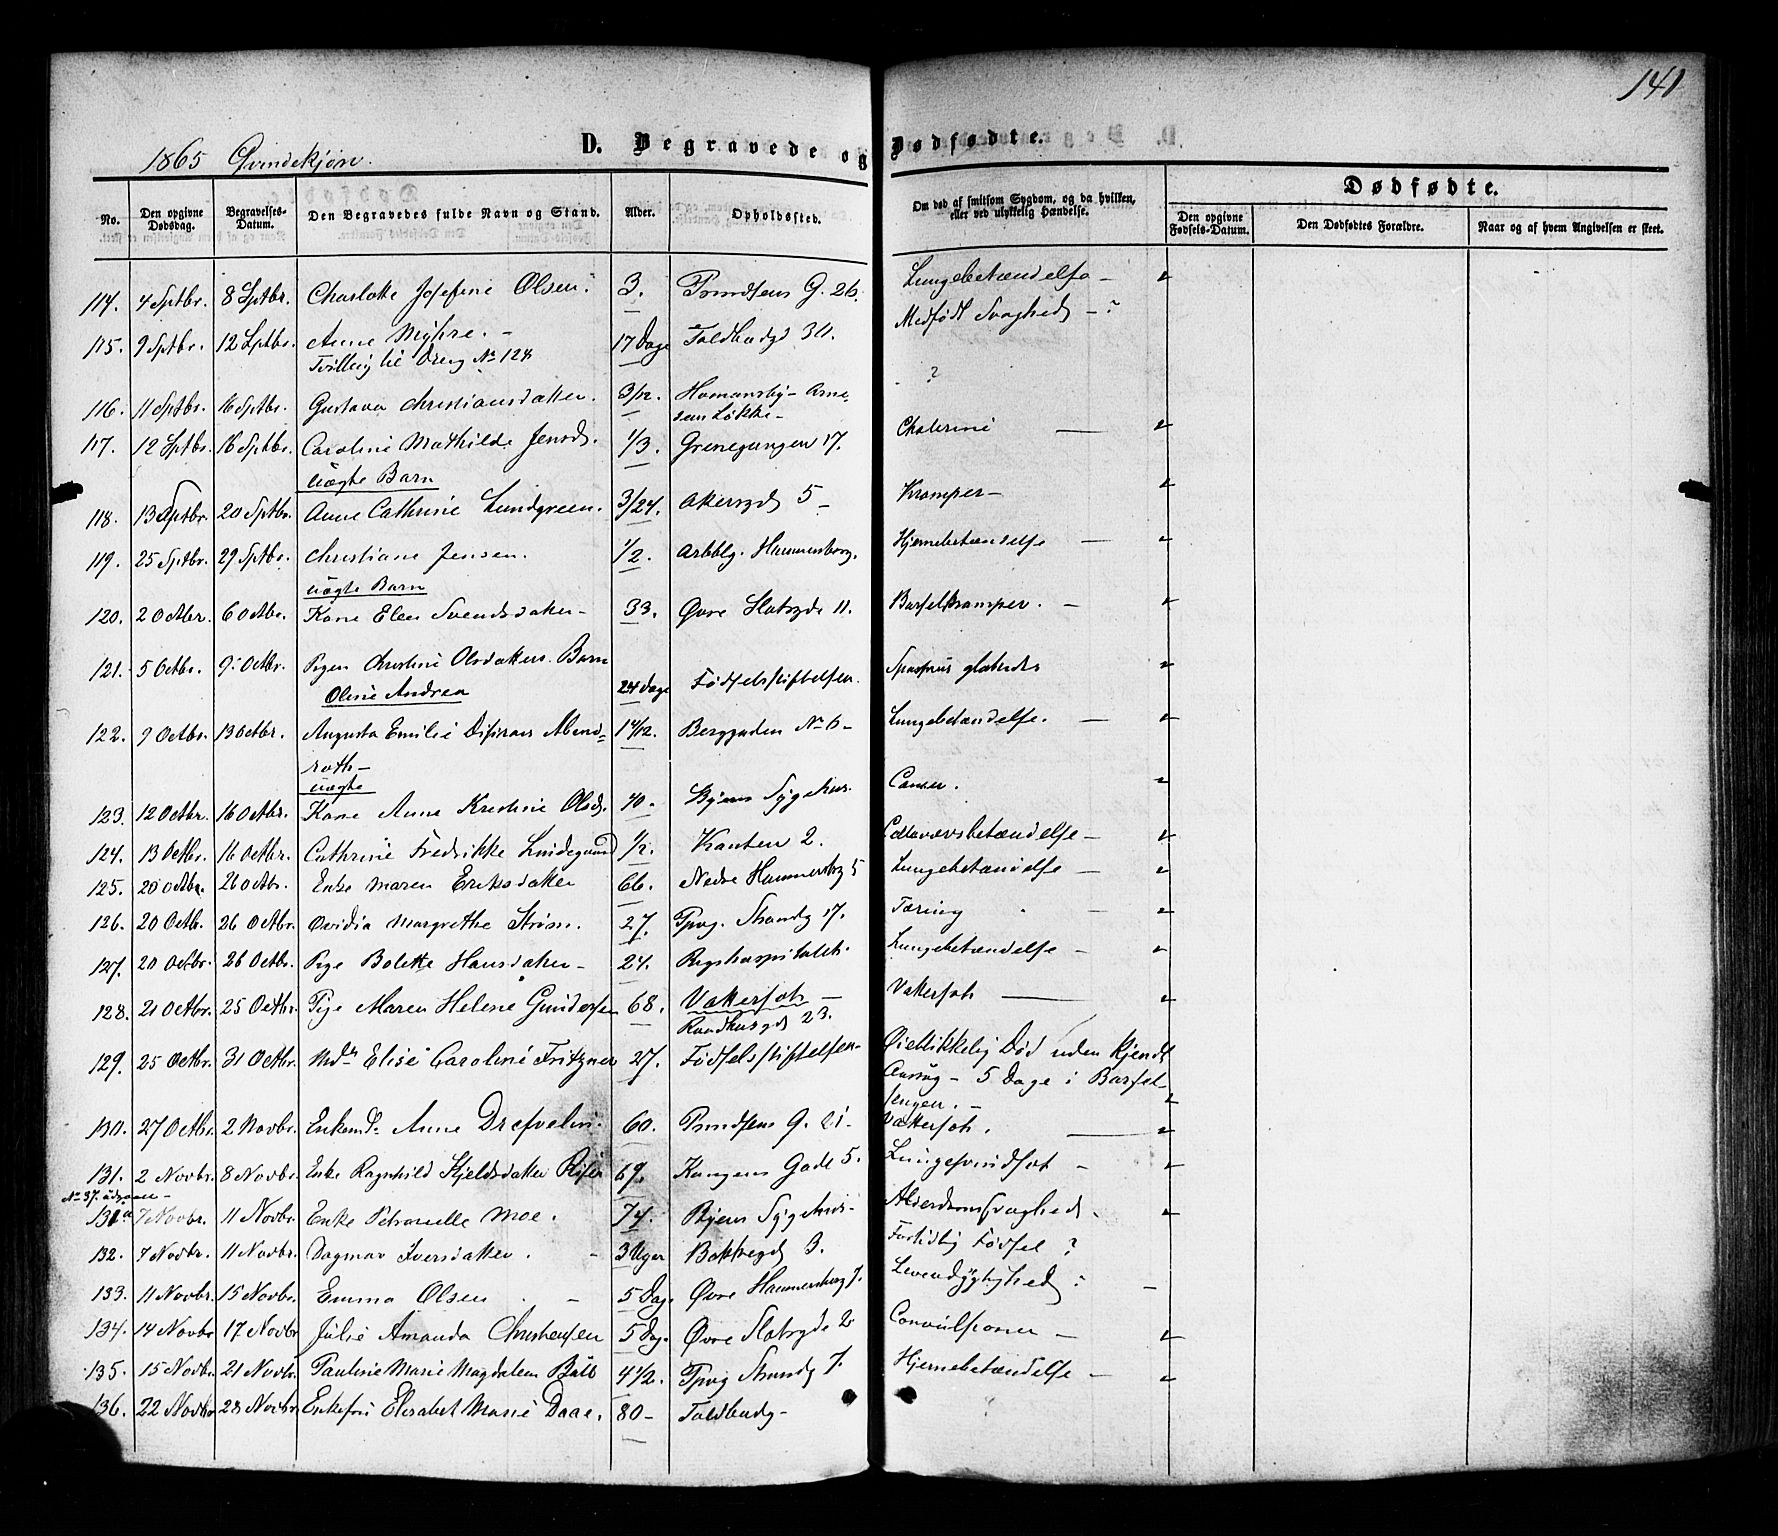 141
1865 Qvindekjøn.
D. Begravede og Dødfødte.
No. Den opgivne Dødsdag. Begravelses-Datum. Den Begravedes fulde Navn og Stand. Alder. Opholdssted. Om død af smitsom Sygdom, og da hvilken, eller ved ulykkelig Hændelse.
Dødfødte.
Den opgivne Fødsels-Datum. Den Dødfødtes Forældre. Naar og af hvem Angivelsen er skeet.
114. 4 Sptbr. 8 Sptbr. Charlotte Josefine Olsen. 3. G. 26. Lungebetændelse -
115. 9 Sptbr. 12 Sptbr. Anne Myhre. - 17 Dage Toldbudgd 30. Medfødt Svaghed - ?
Tvilling til Dreng No 128
116. 11 Sptbr. 16 Sptbr. Gustava Christiansdatter. 3/12. Homansby - Arne- ?
sens Løkke -
117. 12 Sptbr. 16 Sptbr. Caroline Mathilde Jensd. 1/3. Grønegangen 17. Cholerine -
uægte Barn
118. 13 Sptbr. 20 Sptbr. Anne Cathrine Lundgreen. 3/24. Akersgd 5 - Kramper -
119. 25 Sptbr. 29 Sptbr. Christiane Jensen. 1/2. Arbbg. Hammersborg. Hjernebetændelse -
uægte Barn
120. 2 Octbr. 6 Octbr. Kone Elen Svendsdatter - 33. Øvre Slotsgde 11. Barselkramper. -
121. 5 Octbr. 9 Octbr. Pigen Christine Olsdatters Barn
Oline Andrea 24 dage Fødselsstiftelsen. Spasmus glottidis
122. 9 Octbr. 13 Octbr. Augusta Emilie Abend- 14/12. Berggaden No 6 - Lungebetændelse. -
roth -
uægte
123. 12 Octbr. 16 Octbr. Kone Anne Kristine Olsd. 40. Byens Sygehus. Cancer.
124. 13 Octbr. 16 Octbr. Cathrine Fredrikke Lindegaard 1/2. Kanten 2. Cellevævsbetændelse -
125. 20 Octbr. 26 Octbr. Enke Maren Eriksdatter 66. Nedre Hammersbg 5 Lungebetændelse -
126. 20 Octbr. 26 Octbr. Ovidia Margrethe Strøm. 27. Tpvg. Strandg 17. Tæring -
127. 20 Octbr. 26 Octbr. Pige Bolette Hansdatter - 24. Rigshospitalet. Lungebetændelse -
128. 21 Octbr. 25 Octbr. Pige Maren Helene Gundersen 68. Vattersot - Vattersot -
Raadhusgd 23.
129. 25 Octbr. 31 Octbr. Md. Elise Caroline Fritzner 27. Fødselsstiftelsen - Øieblikkelig Død uden kjendt
Aarsag - 5 Dage i Barsel-
sengen. -
130. 27 Octbr. 2 Novbr. Enkemd. Anne Drefvelin. 60. G. 21. Vattersot. -
131. 2 Novbr. 8 Novbr. Enke Ragnhild Kjeldsdatter 69. Kongens Gade 5. Lungesvindsot -
No 37. udgaaen -
131a 7 Novbr. 11 Novbr. Enke Petronelle Moe. 74. Byens Sygehus - Alderdomssvaghed.
132. 7 Novbr. 11 Novbr. Dagmar Iversdatter. - 3 Uger Bakkegd 3. Fortidlig Fødsel ?
133. 11 Novbr. 15 Novbr. Emma Olsen - 5 Dage Øvre Hammersborg 7. Levendygtighed -
134. 14 Novbr 17 Novbr Julie Amanda Christensen 5 Dg. Øvre Slotsgde 2 Convulsioner -
135. 15 Novbr. 21 Novbr. Pauline Marie Magdalene 4 1/2. Tpvg Strandg 7. Hjernebetændelse -
136. 22 Novbr 28 Novbr. Enkefru Elisabet Marie Daae. 80 - Toldbudg -